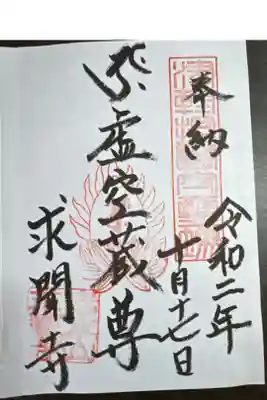 奉納
令和二年
十月十七日
虚空蔵尊
求聞寺